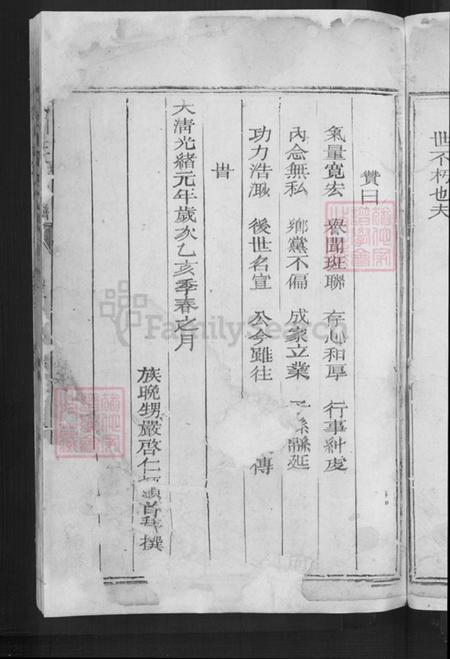 世不朽也夫
贊曰
氣量寬宏 聞班聯 存心和厚 行事
內念無私 鄉黨不偏 成家立業 延
功力浩 後世名宣 公今雖往 傳
旹
大清光緒元年歲次乙亥季春之月
族晚甥嚴啓仁頓首拜撰
FamilySearch